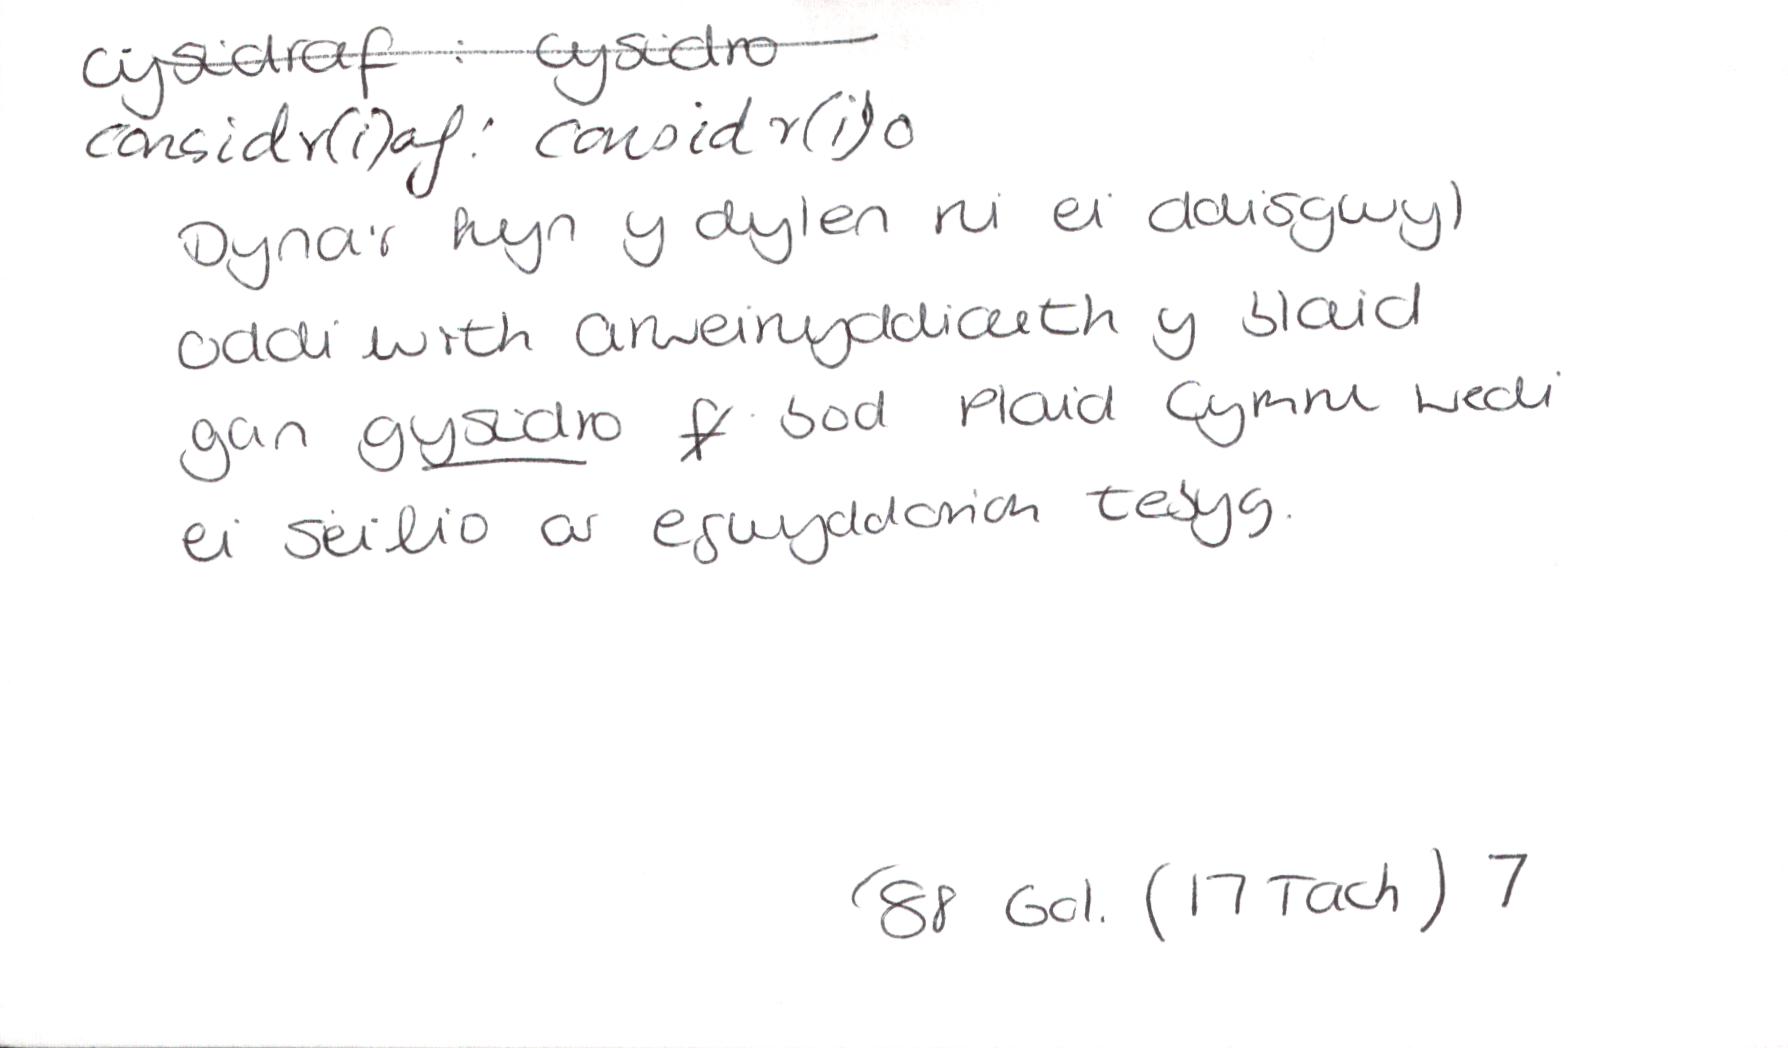 cysidraf : cysidro
considr(i)af: considr(i)o
Dyna'r hyn y dylen ni ei ddisgwyl
oddi wrth arweinyddiaeth y blaid
gan gysidro bod Plaid Cymru wedi
ei seilio ar egwyddorion tebyg.
'88 Gol. (17 Tach) 7